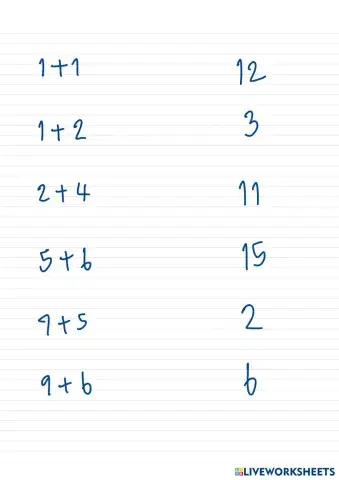 1+1 12
1+2 3
2+4 11
5+6 15
7+5 2
9+6 6
LIVEWORKSHEETS